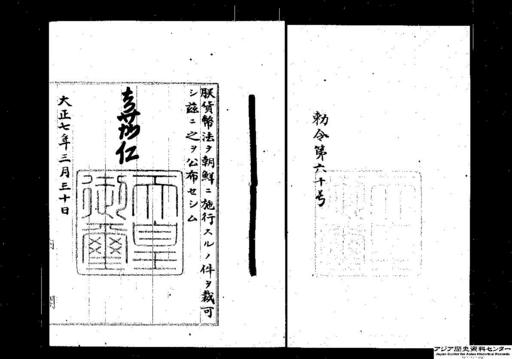 勅令第六十号
朕貨幣法ヲ朝鮮ニ施行スルノ件ヲ裁可
シ茲ニ之ヲ公布セシム
嘉仁
天皇
御璽
大正七年三月三十日
アジア歴史資料センター
Japan Center for Asian Historical Records